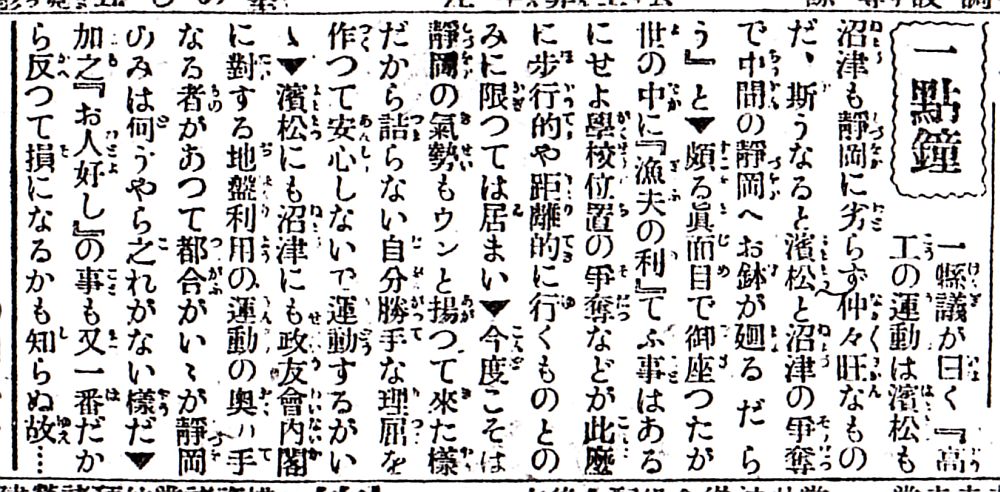 一點鐘
一縣議が曰く『高
工の運動は濱松も
沼津も靜岡に劣らず仲々旺なもの
だ、斯うなると濱松と沼津の爭奪
で中間の靜岡へお鉢が廻るだら
う』と▼頗る眞面目で御座つたが
世の中に『漁夫の利』てふ事はある
にせよ學校位置の爭奪などが此麼
に步行的や距離的に行くものとの
みに限つては居まい▼今度こそは
靜岡の氣勢もウンと揚つて來た樣
だから詰らない自分勝手な理屈を
作つて安心しないで運動するがい
ゝ▼濱松にも沼津にも政友會內閣
に對する地盤利用の運動の奧ハ手
なる者があつて都合がいゝが靜岡
のみは何うやら之れがない樣だ▼
加之『お人好し』の事も又一番だか
ら反つて損になるかも知らぬ故…